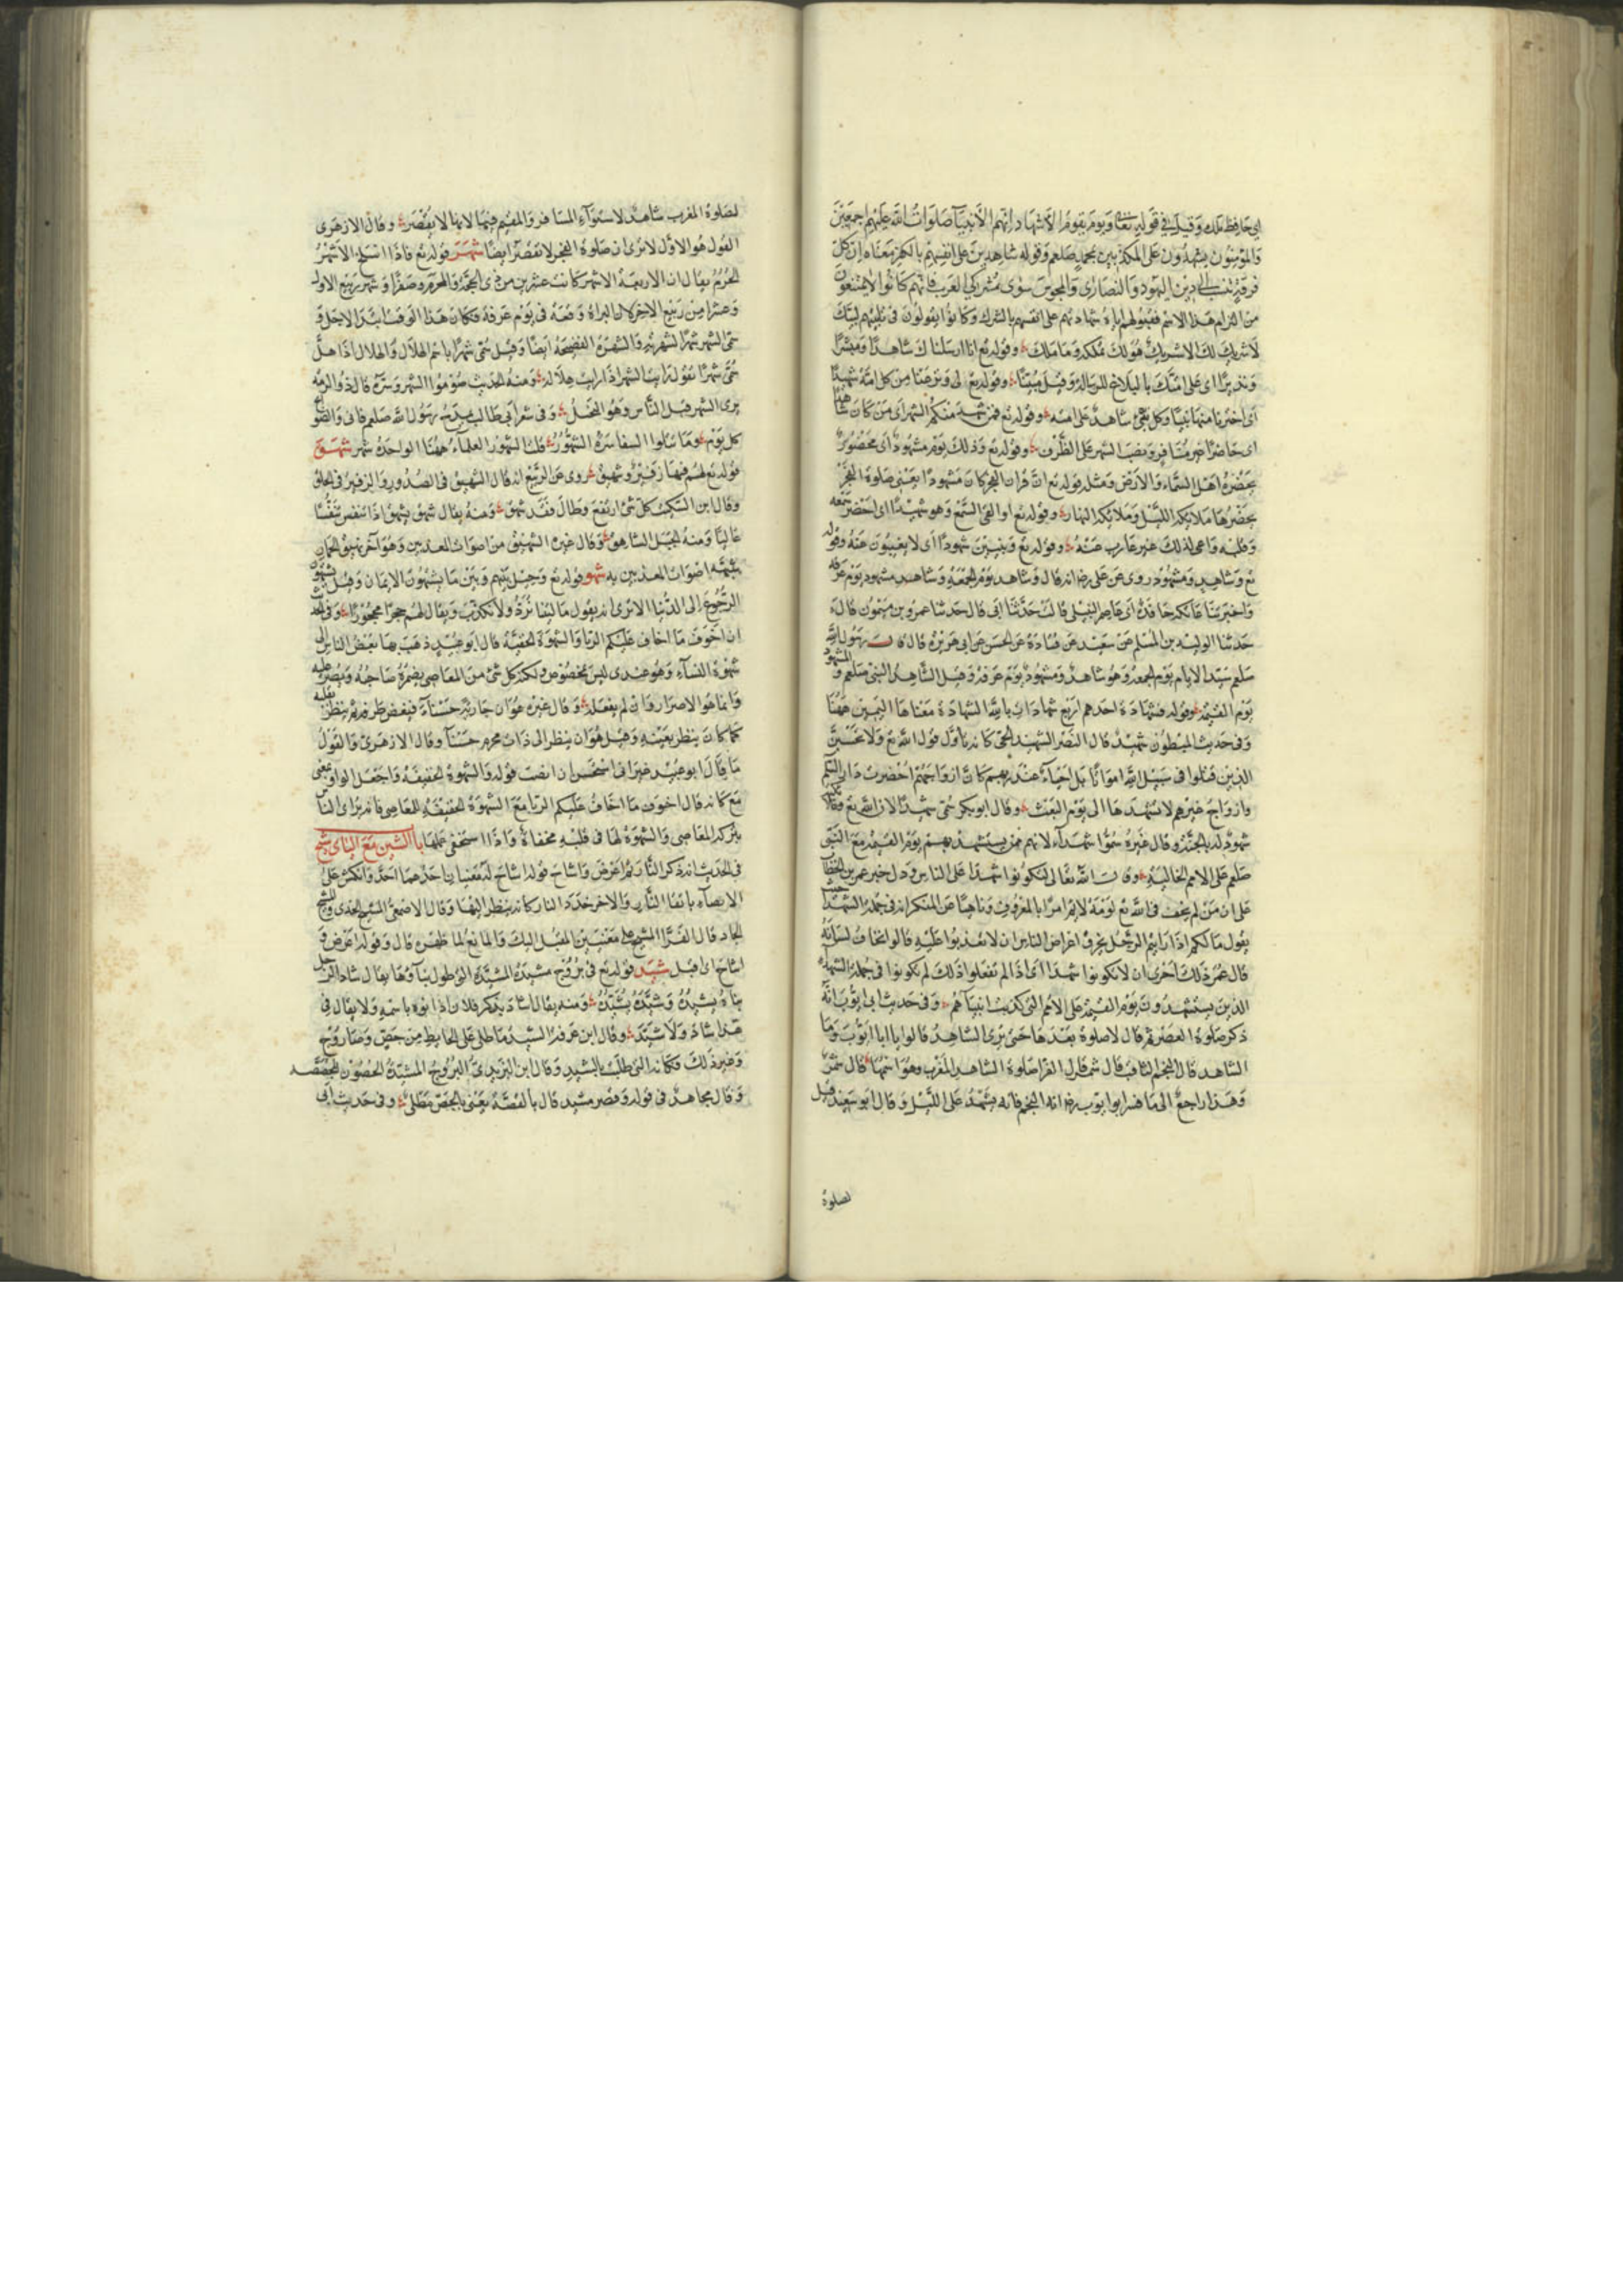 اي حافظ ملك وقيل في قوله تعا ويوم يقوم الاشهاد انهم الانبيآ صلوات الله عليهم اجمعين
والمؤمنون يشهدون على المكذبين بمحمد صلعم وقوله شاهدين على انفسهم بالكفر معناه ان كل
فرقة تنسب الى دين اليهود والنصارى والمجوس سوى مشركي العرب فانهم كانوا لا يمتنعون
من التزام هذا الاسم فقبولهم اياه شهادتهم على انفسهم بالشرك وكانوا يقولون في تلبيتهم لبيك
لا شريك لك الا شريك هو لك تملكه وما ملك وقوله تع انا ارسلناك شاهدا ومبشرا
ونذيرا اي على امتك بالبلاغ للرسالة وقيل مبينا وقوله تع ونزعنا من كل امة شهيدا
اي اخترنا منها نبيا وكل نبي شاهد على امته وقوله تع فمن شهد منكم الشهر اي من كان شاهدا
اي حاضرا غير مسافر ونصب الشهر على الظرف وقوله تع وذلك يوم مشهود اي محضور
يحضره اهل السماء والارض ومثله قوله تع ان قران الفجر كان مشهودا يعني صلوة الفجر
يحضرها ملائكة الليل وملائكة النهار وقوله تع او القى السمع وهو شهيد اي احضر سمعه
وقلبه واعى لذلك غير عازب عنه وقوله تع وبنين شهودا اي لا يغيبون عنه وقوله
تع وشاهد ومشهود روى عن على رضه انه قال وشاهد يوم الجمعة وشاهد مشهود يوم عرفه
واخبرتنا عاتكة حافدة ابي عاصم النبيل قالت حدثنا ابي قال حدثنا عمرو بن ميمون قال
حدثنا الوليد بن المسلم عن سعيد عن قتادة عن الحسن عن ابي هريرة قال قال رسول الله
صلعم سيد الايام يوم الجمعة وهو شاهد ومشهود يوم عرفة وقيل الشاهد النبي صلعم والمشهود
يوم القيمة وقوله فشهادة احدهم اربع شهادات بالله الشهادة معناها اليمين ههنا
وفي حديث المبطون شهيد قال النضر الشهيد الحي كانه تاول قول الله تع ولا تحسبن
الذين قتلوا في سبيل الله امواتا بل احياء عند ربهم كان ارواحهم احضرت دار السلم
وارواح غيرهم لا تشهدها الى يوم البعث وقال ابو بكر سمى شهيدا لان الله تع وملائكته
شهود له بالجنة وقال غيره سموا شهدآء لانهم ممن يستشهد بهم يوم القيمة مع النبي
صلعم على الامم الخالية وقال الله تعالى لتكونوا شهدا على الناس ودل خبر عمر بن الخطاب
على ان من لم يخف في الله تع لومة لائم امرا بالمعروف وناهيا عن المنكر انه في جملة الشهدا حيث
يقول ما لكم اذا رايتم الرجل يخرق اعراض الناس ان لا تعربوا عليه قالوا نخاف لسانه
قال عمر ذلك احرى ان لا تكونوا شهدا اي اذا لم تفعلوا ذلك لم تكونوا في جملة الشهداء
الذين يستشهدون يوم القيمة على الامم التي كذبت انبيآهم وفي حديث ابي ايوب انه
ذكر صلوة العصر ثم قال لا صلوة بعدها حتى ترى الشاهد قالوا يا ابا ايوب وما
الشاهد قال النجم الثاقب قال شمر قال الفرا صلوة الشاهد المغرب وهو اسمها قال شمر
وهذا راجع الى ما فسر ابو ايوب رضه انه النجم فانه يشهد على الليل وقال ابو سعيد قيل
لصلوة
لصلوة المغرب شاهد لاستوآء المسافر والمقيم فيها لانها لا تقصر وقال الازهرى
القول هو الاول لا ترى ان صلوة الفجر لا تقصر ايضا شهر قوله تع فاذا انسلخ الاشهر
الحرم يقال ان الاربعة الاشهر كانت عشرين من ذي الحجة والمحرم وصفرا وشهر ربيع الاول
وعشرا من ربيع الاخر لان البراة وقعة في يوم عرفة فكان هذا الوقت ابتدا الاجل و
سمى الشهر شهرا لشهرته والشهرة الفضيحة ايضا وقيل سمى شهرا باسم الهلال والهلال اذا هل
سمى شهرا تقول رايت الشهر اذا رايت هلاله ومنه الحديث صوموا الشهر وسره قال ذو الرمه
يرى الشهر قبل الناس وهو نحيل وفي شعر ابي طالب يمدح رسول الله صلعم فاني والضوابح
كل يوم وما تتلوا السفاسرة الشهور قلت الشهور العلماء ههنا الواحدة شهر شهق
قوله تع لهم فيها زفير وشهيق روى عن الربيع انه قال الشهيق في الصدور والزفير في الحلق
وقال ابن السكيت كل شئ ارتفع وطال فقد شهق ومنه يقال شهق يشهق اذا تنفس تنفسا
عاليا ومنه الجبل الشاهق وقال غيره الشهيق من اصوات المعذبين وهو آخر نهيق الحمار
يشبه اصوات المعذبين به شهو قوله تع وحيل بينهم وبين ما يشتهون الايمان وقيل يشتهون
الرجوع الى الدنيا الا ترى انه يقول ما ليتنا نرد ولا نكذب ويقال لهم حجرا محجورا وفي الحديث
ان اخوف ما اخاف عليكم الريا والشهوة الخفية قال ابو عبيد ذهب بها بعض الناس الى
شهوة النسآء وهو عندى ليس بمخصوص ولكنه كل شئ من المعاصى يضمره صاحبه ويصر عليه
وانما هو الاصرار وان لم يفعله وقال غيره هو ان جارية حسنآء فيغض طرفه ثم ينظر بقلبه
كما كان ينظر بعينه وقيل هو ان ينظر الى ذات محرم حسنآ وقال الازهرى والقول
ما قال ابو عبيد غير اني استحسن ان انصب قوله والشهوة الخفية واجعل الواو بمعنى
مع كانه قال اخوف ما اخاف عليكم الريا مع الشهوة الخفية للمعاصى فانه يرائ الناس
بتركه المعاصى والشهوة لها في قلبه مخفاة واذا استخفى عملها باب الشين مع الياى شيح
في الحديث انه ذكر النار ثم اعرض واشاح قوله اشاح له معنيان احدهما الجد والانكماش على
الايصآء باتقا النار والاخر حذر النار كانه ينظر اليها وقال الاصمعي المشيح الحذر والمشيح
الجاد قال الفرا المشيح على معنيين المقبل اليك والمانع لما ظهره قال وقوله اعرض و
اشاح اي اقبل شيد قوله تع في بروج مشيدة المشيدة المطول بنآوها يقال شاد الرجل
بناه يشيده وشيده يشيده ومنه يقال اشاد بذكر فلان اذا نوه باسمه ولا يقال في
هذا شاد ولا شيد وقال ابن عرفة الشيد ما طلي على الحايط من جص وصاروج
وغير ذلك فكانه التى طليت بالشيد وقال ابن اليزيدي البروج المشيدة الحصون المجصصة
وقال مجاهد في قوله وقصر مشيد قال بالقصة يعني بالجص مطلى وفي حديث ابي